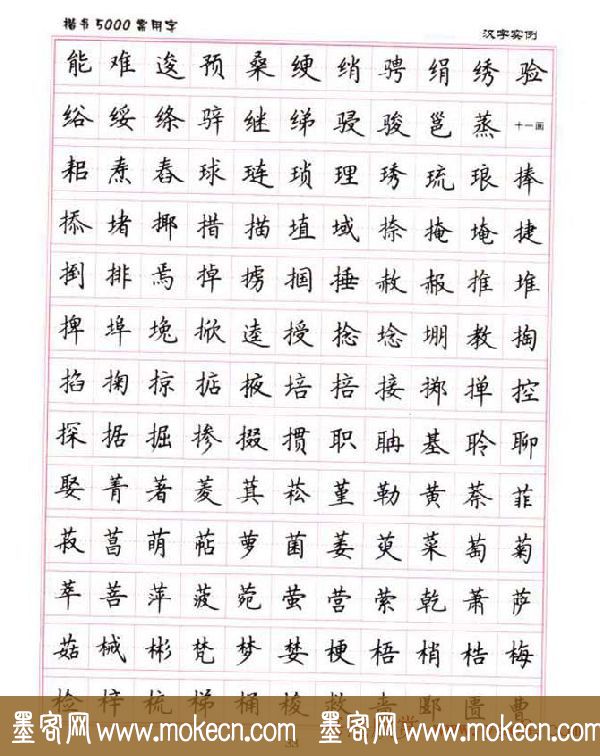 楷书5000常用字 汉字实例
能难逡预桑绠绡骋绢绣验
绤绥绦骍继绨骎骏邕蒸十一画
耜焘舂球琏琐理琇琉琅捧
掭堵揶措描埴域捺掩埯捷
捯排焉掉掳掴捶赦赧推堆
捭埠堍掀逵授捻埝堋教掏
掐掬掠掂掖培掊接掷掸控
探据掘掺掇掼职聃基聆聊
娶菁著菱萁菘堇勒黄萘菲
菽菖萌萜萝菌萎萸菜萄菊
萃菩萍菠菀萤营萦乾萧萨
菇械彬梵梦婪梗梧梢梏梅
检梓梳梯桶梭救啬郾匮曹
33
墨客网 www.mokecn.com 墨客网 www.mokecn.com